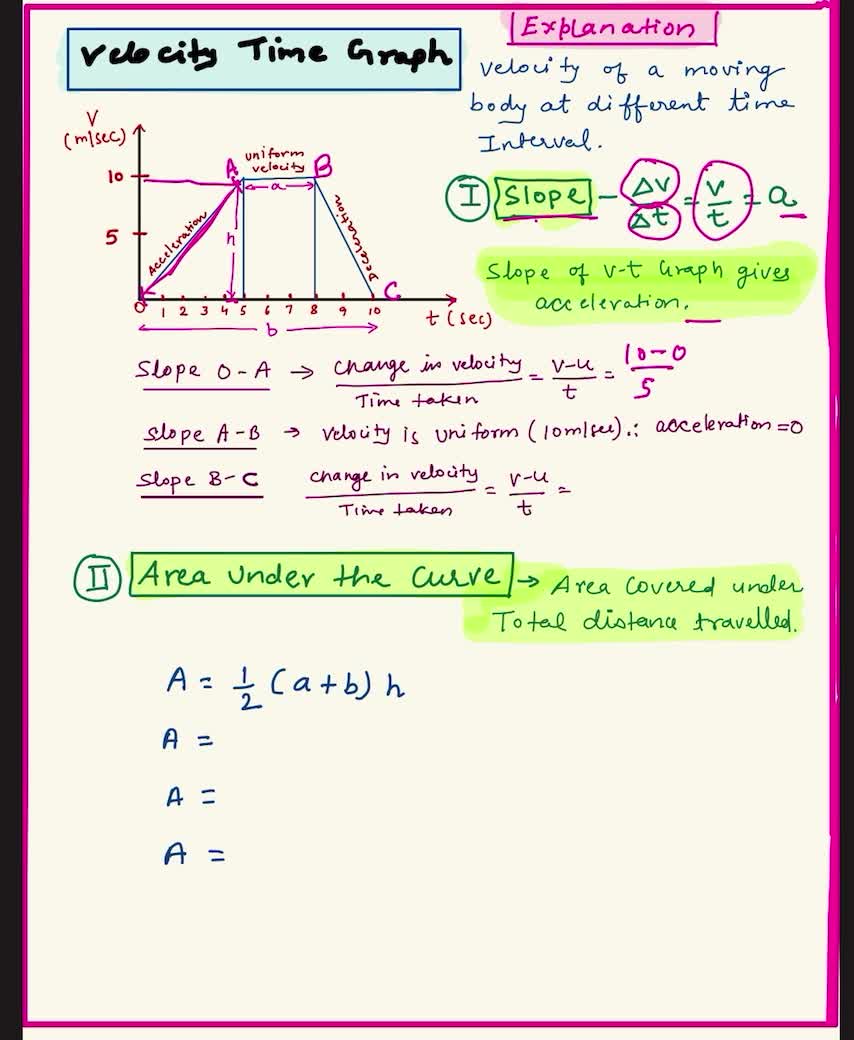 Explanation
Velocity Time Graph
velocity of a moving
body at different time
Interval.
V
(m/sec)
10
5
A
uniform
velocity
B
a
Acceleration
h
Deceleration
C
0 1 2 3 4 5 6 7 8 9 10
t (sec)
b
I Slope – Δv/Δt = v/t = a
Slope of v-t Graph gives
acceleration.
Slope O-A → change in velocity/Time taken = v-u/t = 10-0/5
slope A-B → velocity is uniform (10m/sec) ∴ acceleration = 0
Slope B-C change in velocity/Time taken = v-u/t =
II Area under the curve → Area covered under
Total distance travelled.
A = 1/2 (a+b) h
A =
A =
A =